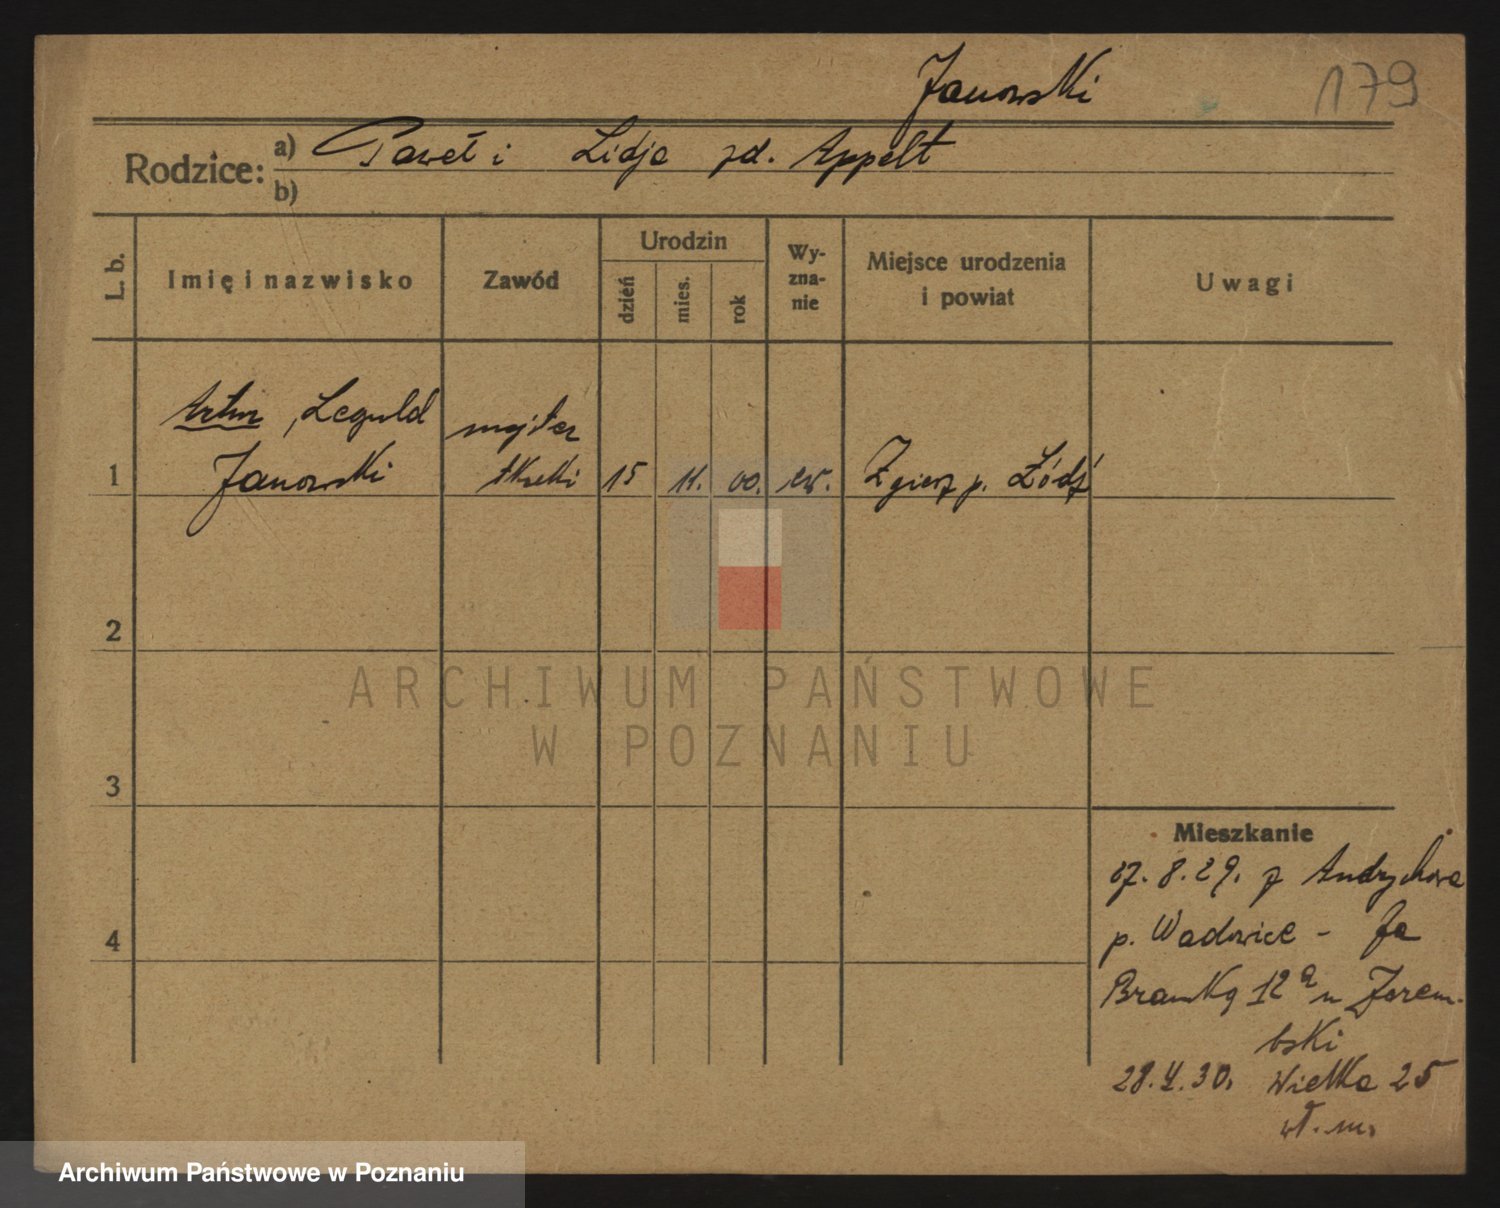 Janowski
179
Rodzice: a) Paweł i Lidja zd. Appelt
b)
L. b. Imię i nazwisko Zawód Urodzin dzień mies. rok Wy-zna-nie Miejsce urodzenia i powiat Uwagi
Artur, Leopold majster
1 Janowski tkacki 15 11. 00. ew. Zgierz p. Łódź
2
ARCHIWUM PAŃSTWOWE
W POZNANIU
3
Mieszkanie
27. 8. 29. z Andrychowa
4
p. Wadowice - Za
Bramką 12a u Zarem-
bski
28. V. 30. Wielka 25
wł. m.
Archiwum Państwowe w Poznaniu